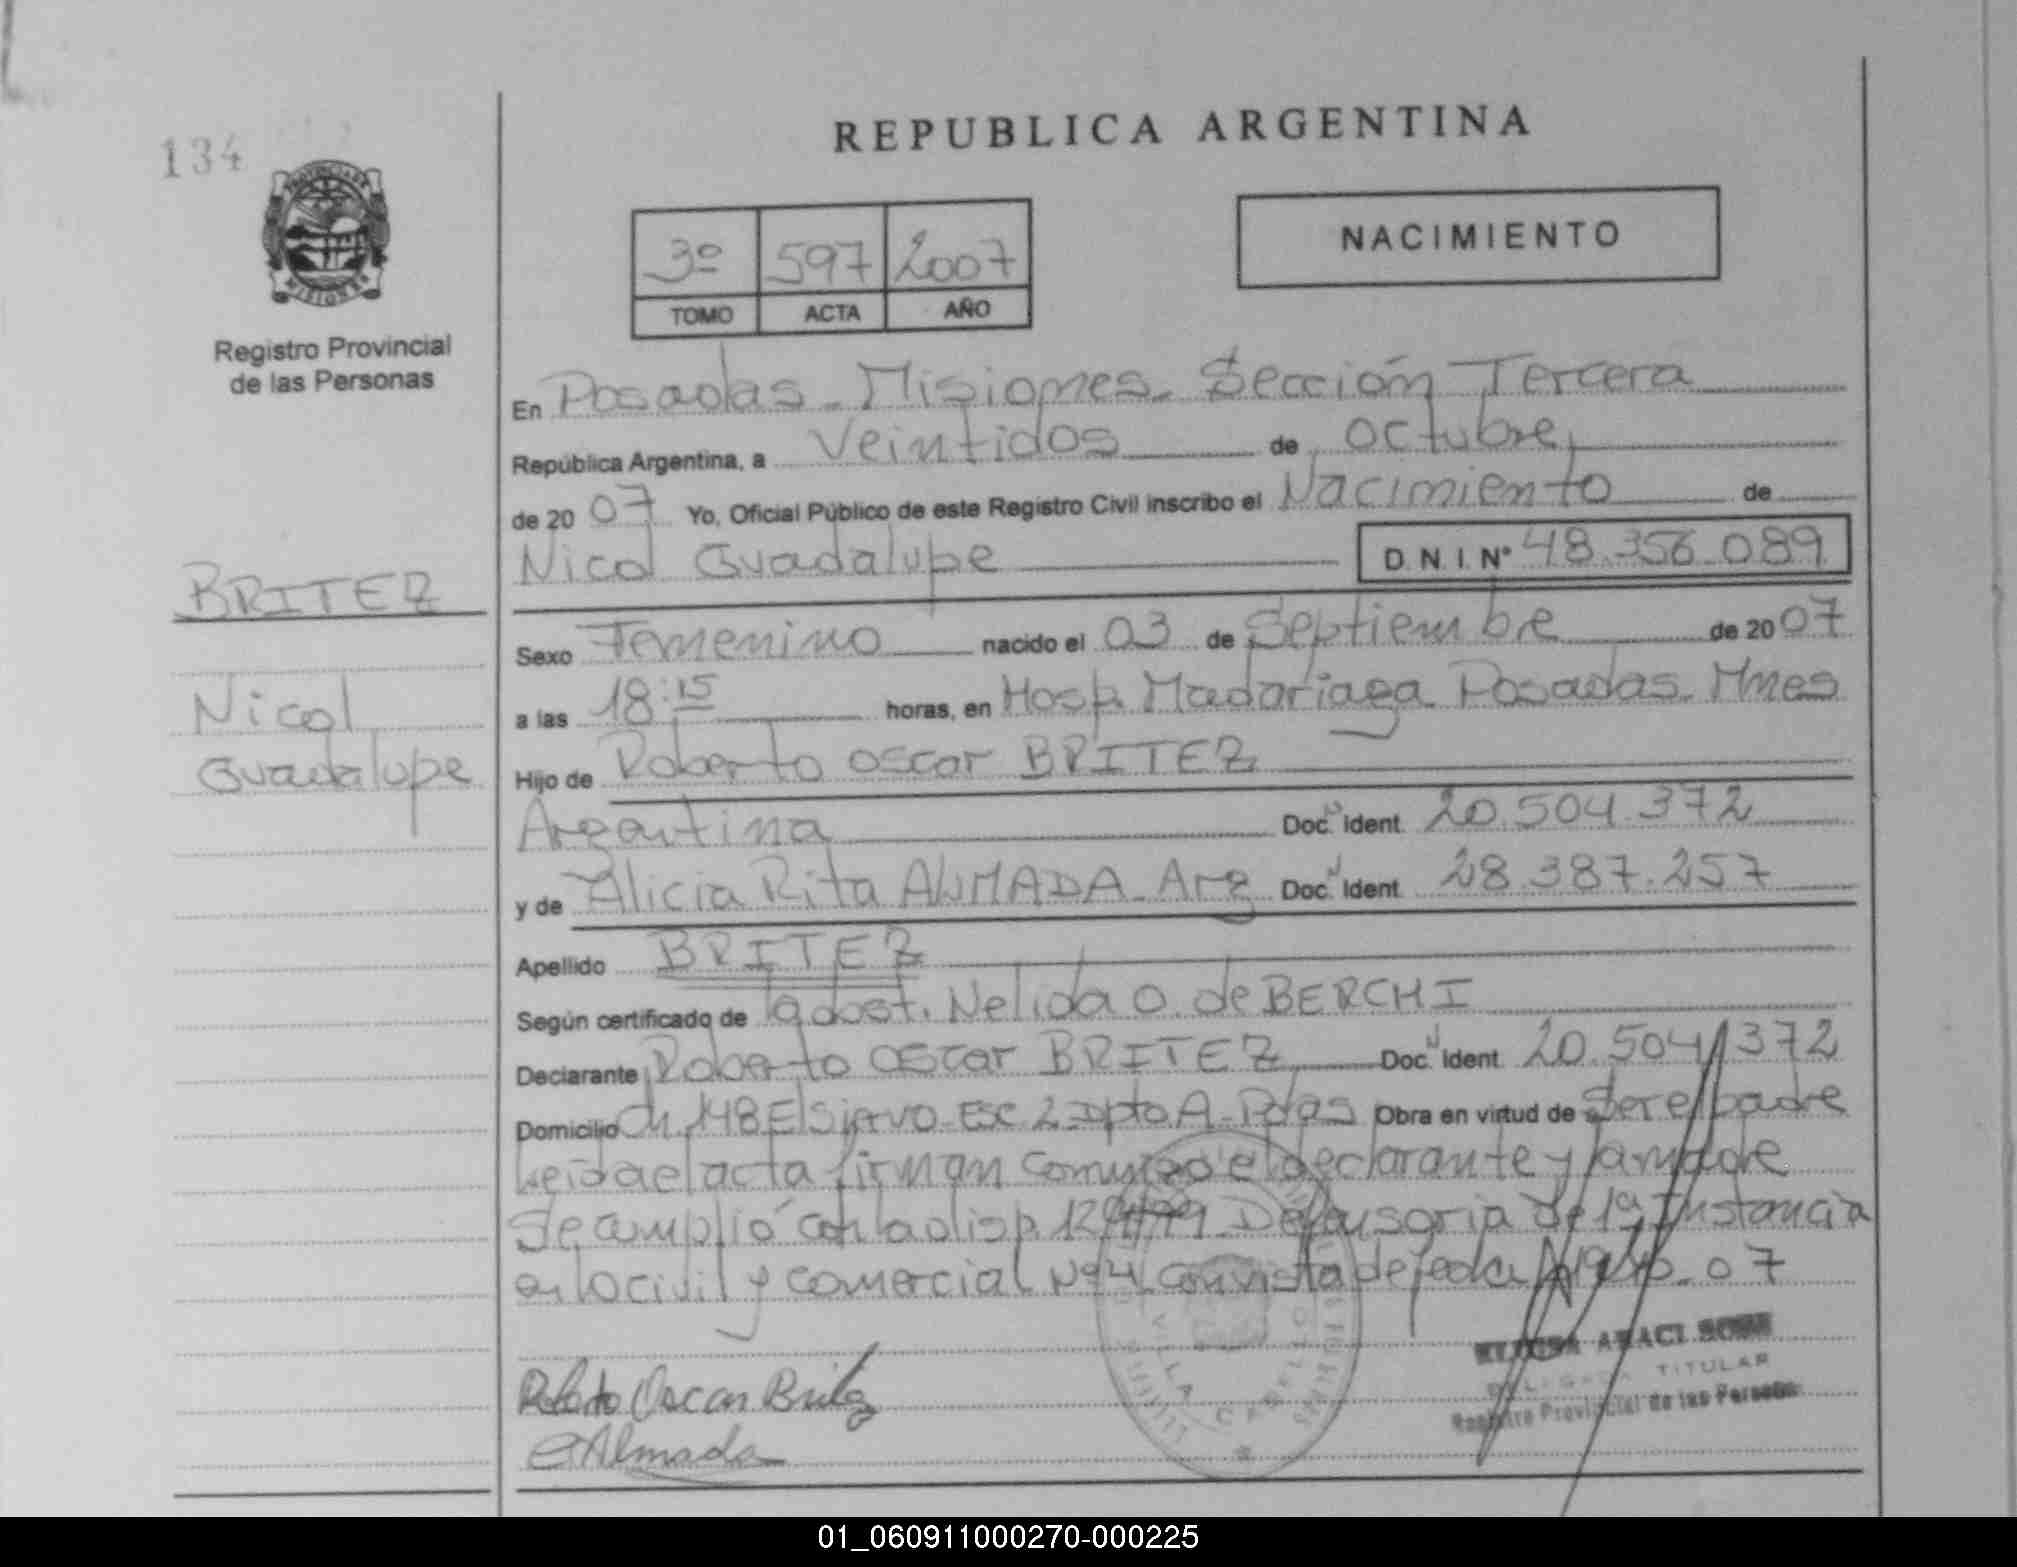 134
PROVINCIA DE
MISIONES
Registro Provincial
de las Personas
REPUBLICA ARGENTINA
3º 597 2007
TOMO ACTA AÑO
NACIMIENTO
En Posadas - Misiones - Sección Tercera
República Argentina, a Veintidos de octubre,
de 2007 Yo, Oficial Público de este Registro Civil inscribo el Nacimiento de
Nicol Guadalupe D.N.I. Nº 48.356.089
BRITEZ
Nicol
Guadalupe
Sexo Femenino nacido el 03 de Septiembre de 2007
a las 18:15 horas, en Hosp. Madariaga Posadas - Mnes
Hijo de Roberto Oscar BRITEZ
Argentina Doc. Ident. 20.504.372
y de Alicia Rita ALMADA - Arg Doc. Ident. 28.387.257
Apellido BRITEZ
Según certificado de la obst. Nelida O. de BERCHI
Declarante Roberto Oscar BRITEZ Doc. Ident. 20.504.372
Domicilio Ch 148 El Siervo Esc 2 Dpto A - Pdas Obra en virtud de ser el padre
Leida el acta firman conmigo el declarante y la madre
Se cumplió con la disp. 129/99 Defensoria de 1ª Instancia
en lo civil y comercial Nº 4 con vista de fecha 07
Roberto Oscar Britez
Almada
ARACI
DELEGADA TITULAR
Registro Provincial de las Personas
VILLA CABELLO
01_060911000270-000225